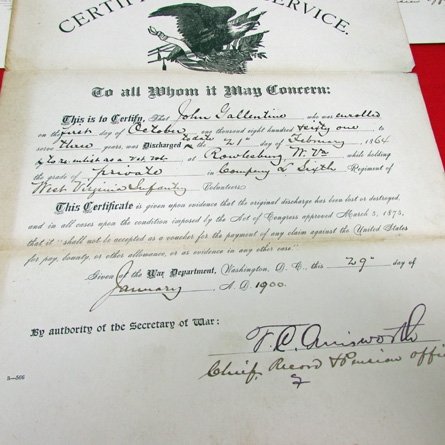 CERTIFI SERVICE.
To all Whom it May Concern:
This is to Certify, That John Gallentine who was enrolled
on the first day of October one thousand eight hundred sixty one to
serve three years, was Discharged to date on the "21" day of February 1864
to re-enlist as a vet. vol. at Rowlesburg W. Va while holding
the grade of private in Company L Sixth Regiment of
West Virginia Infantry Volunteers.
This Certificate is given upon evidence that the original discharge has been lost or destroyed,
and in all cases upon the condition imposed by the Act of Congress approved March 3, 1873,
that it "shall not be accepted as a voucher for the payment of any claim against the United States
for pay, bounty, or other allowance, or as evidence in any other case."
Given at the War Department, Washington, D. C., this "29" day of
January A. D. 1900.
By authority of the Secretary of War:
F. C. Ainsworth
Chief, Record & Pension Offi
3—566